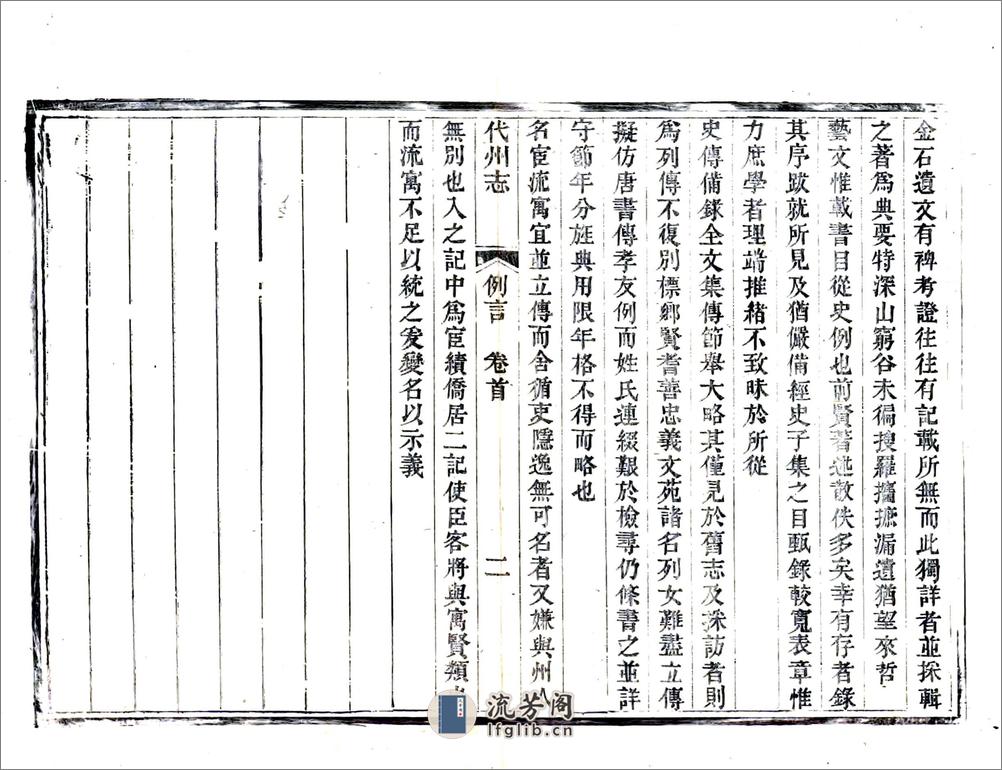 金石遺文有裨考證往往有記載所無而此獨詳者並採輯
之著爲典要特深山窮谷未徧搜羅攟摭漏遺猶望來哲
藝文惟載書目從史例也前賢著述散佚多矣幸有存者錄
其序跋就所見及猶儼備經史子集之目甄錄較寬表章惟
力庶學者理端推緒不致昧於所從
史傳備錄全文集傳節舉大略其僅見於舊志及採訪者則
爲列傳不復別標鄉賢耆善忠義文苑諸名列女難盡立傳
擬仿唐書傳孝友例而姓氏連綴艱於檢尋仍條書之並詳
守節年分旌典用限年格不得而略也
名宦流寓宜並立傳而舍循吏隱逸無可名者又嫌與州人
代州志 例言 卷首 二
無別也入之記中爲宦績僑居二記使臣客將與寓賢類
而流寓不足以統之爰變名以示義
流芳阁
lfglib.cn